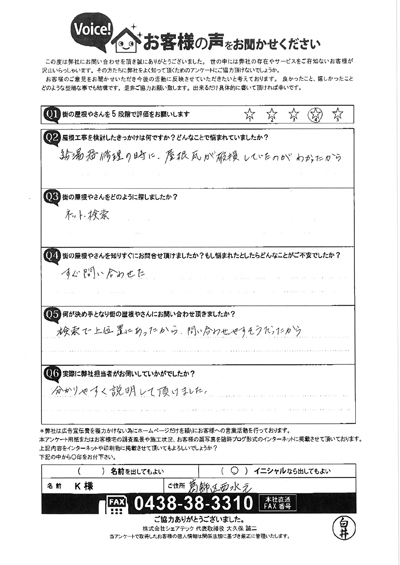 Voice!
お客様の声をお聞かせください
この度は弊社にお問い合わせを頂き誠にありがとうございました。世の中には弊社の存在やサービスをご存知ないお客様が
沢山いらっしゃいます。その方たちに弊社をよく知って頂くためのアンケートにご協力頂けないでしょうか。
お客様のご意見をお聞かせいただき今後の活動に反映させていただきたいと考えております。良かったこと、嬉しかったこと
どのような些細な事でも結構です。是非ご協力お願い致します。出来るだけ具体的に書いて頂ければ幸いです。
Q1 街の屋根やさんを5段階で評価をお願いします
☆ ☆ ☆ ☆ ☆
1 2 3 4 5
Q2 屋根工事を検討したきっかけは何ですか?どんなことで悩まれていましたか?
給湯器修理の時に、屋根瓦が破損していたのがわかったから
Q3 街の屋根やさんをどのように探しましたか?
ネット検索
Q4 街の屋根やさんを知りすぐにお問合せ頂けましたか?もし悩まれたとしたらどんなことがご不安でしたか?
すぐ問い合わせた
Q5 何が決め手となり街の屋根やさんにお問い合わせ頂きましたか?
検索で上位置にあったから、問い合わせやすそうだったから
Q6 実際に弊社担当者がお伺いしていかがでしたか?
分かりやすく説明して頂けました。
※弊社は広告宣伝費を極力かけない為にホームページだけを頼りにお客様への営業活動を行っております。
本アンケート用紙またはお客様宅の調査風景や施工状況、お客様の顔写真を随時ブログ形式のインターネットに掲載させて頂いております。
上記内容をインターネットや印刷物に掲載させて頂いてもよろしいでしょうか?
下記の中から〇印をお付下さい。
( ) 名前を出してもよい ( 〇 ) イニシャルなら出してもよい
名前 K 様 ご住所 葛飾区西水元
FAX 0438-38-3310 本社直通 FAX番号
ご協力ありがとうございました。
株式会社シェアテック 代表取締役 大久保 誠二
当アンケートで取得したお客様の個人情報は関係法規に基づき厳正に管理いたします。
白井